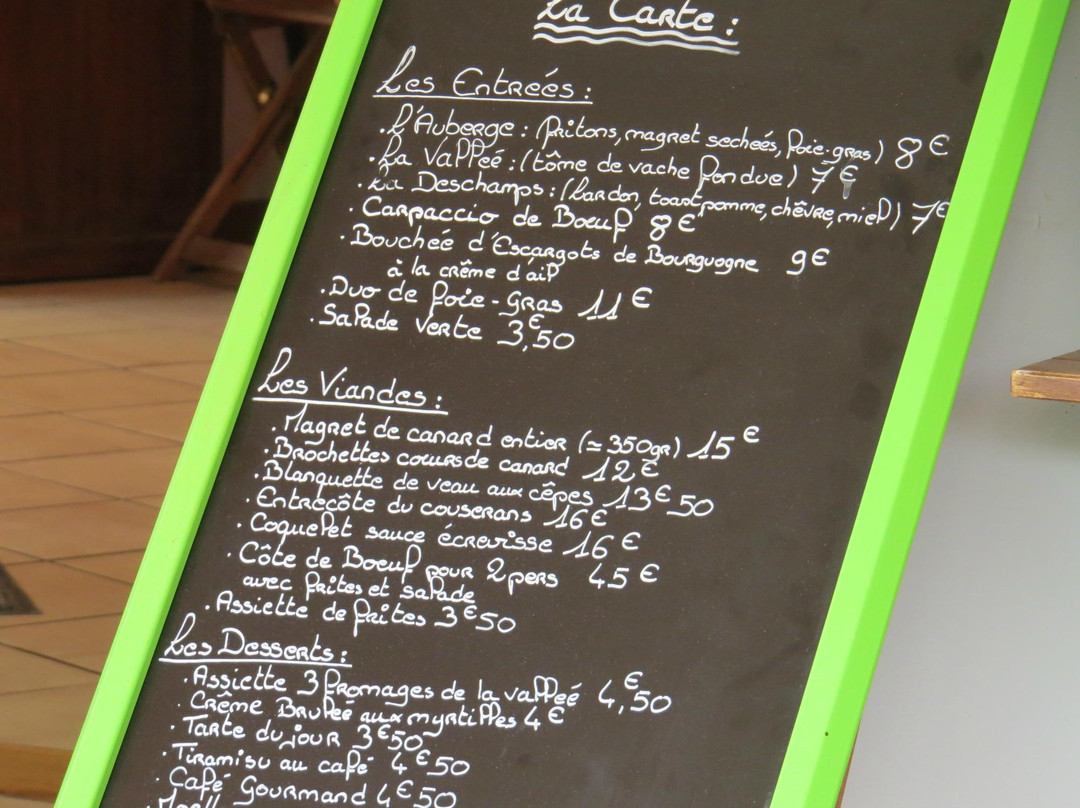 La Carte :
Les Entreés :
. L'Auberge : (fritons, magret secheés, foie-gras) 8 €
. La Valleé : (tôme de vache fondue) 7 €
. La Deschamps : (Lardon, toast pomme, chêvre, miel) 7€
. Carpaccio de Boeuf 8 €
. Boucheé d'Escargots de Bourguogne 9€
à la crême d'ail
. Duo de foie-gras 11 €
. Salade verte 3,€50
Les Viandes :
. Magret de canard entier (≃ 350gr) 15 €
. Brochettes coeurs de canard 12 €
. Blanquette de veau aux cêpes 13€50
. Entrecôte du couserans 16 €
. Coquelet sauce écrevisse 16 €
. Côte de Boeuf pour 2 pers 45 €
avec frites et salade
. Assiette de frites 3€50
Les Desserts :
. Assiette 3 fromages de la valleé 4,€50
. Crême Bruleé aux myrtilles 4 €
. Tarte du jour 3€50
. Tiramisu au café 4€50
. Café Gourmand 4€50